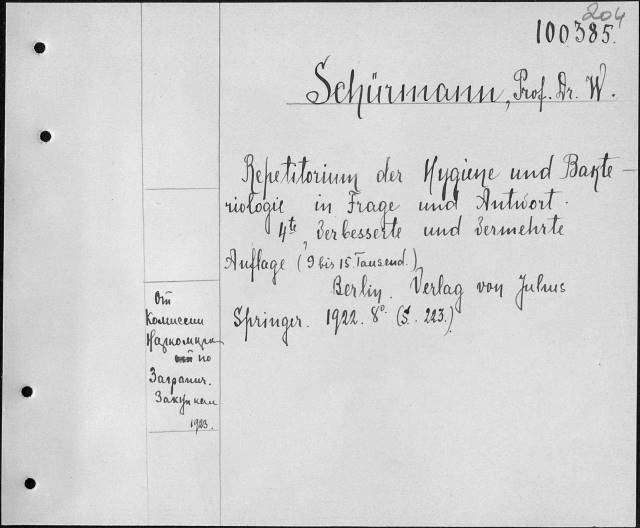 204
100385.
Schürmann, Prof. Dr. W.
Repetitorium der Hygiene und Bakte-
riologie in Frage und Antwort.
4te, verbesserte und vermehrte
Auflage (9 bis 15 Tausend.)
Berlin. Verlag von Julius
Springer. 1922. 8°. (S. 223.)
От
Комиссии
по
Загранич.
Закупкам
1923.